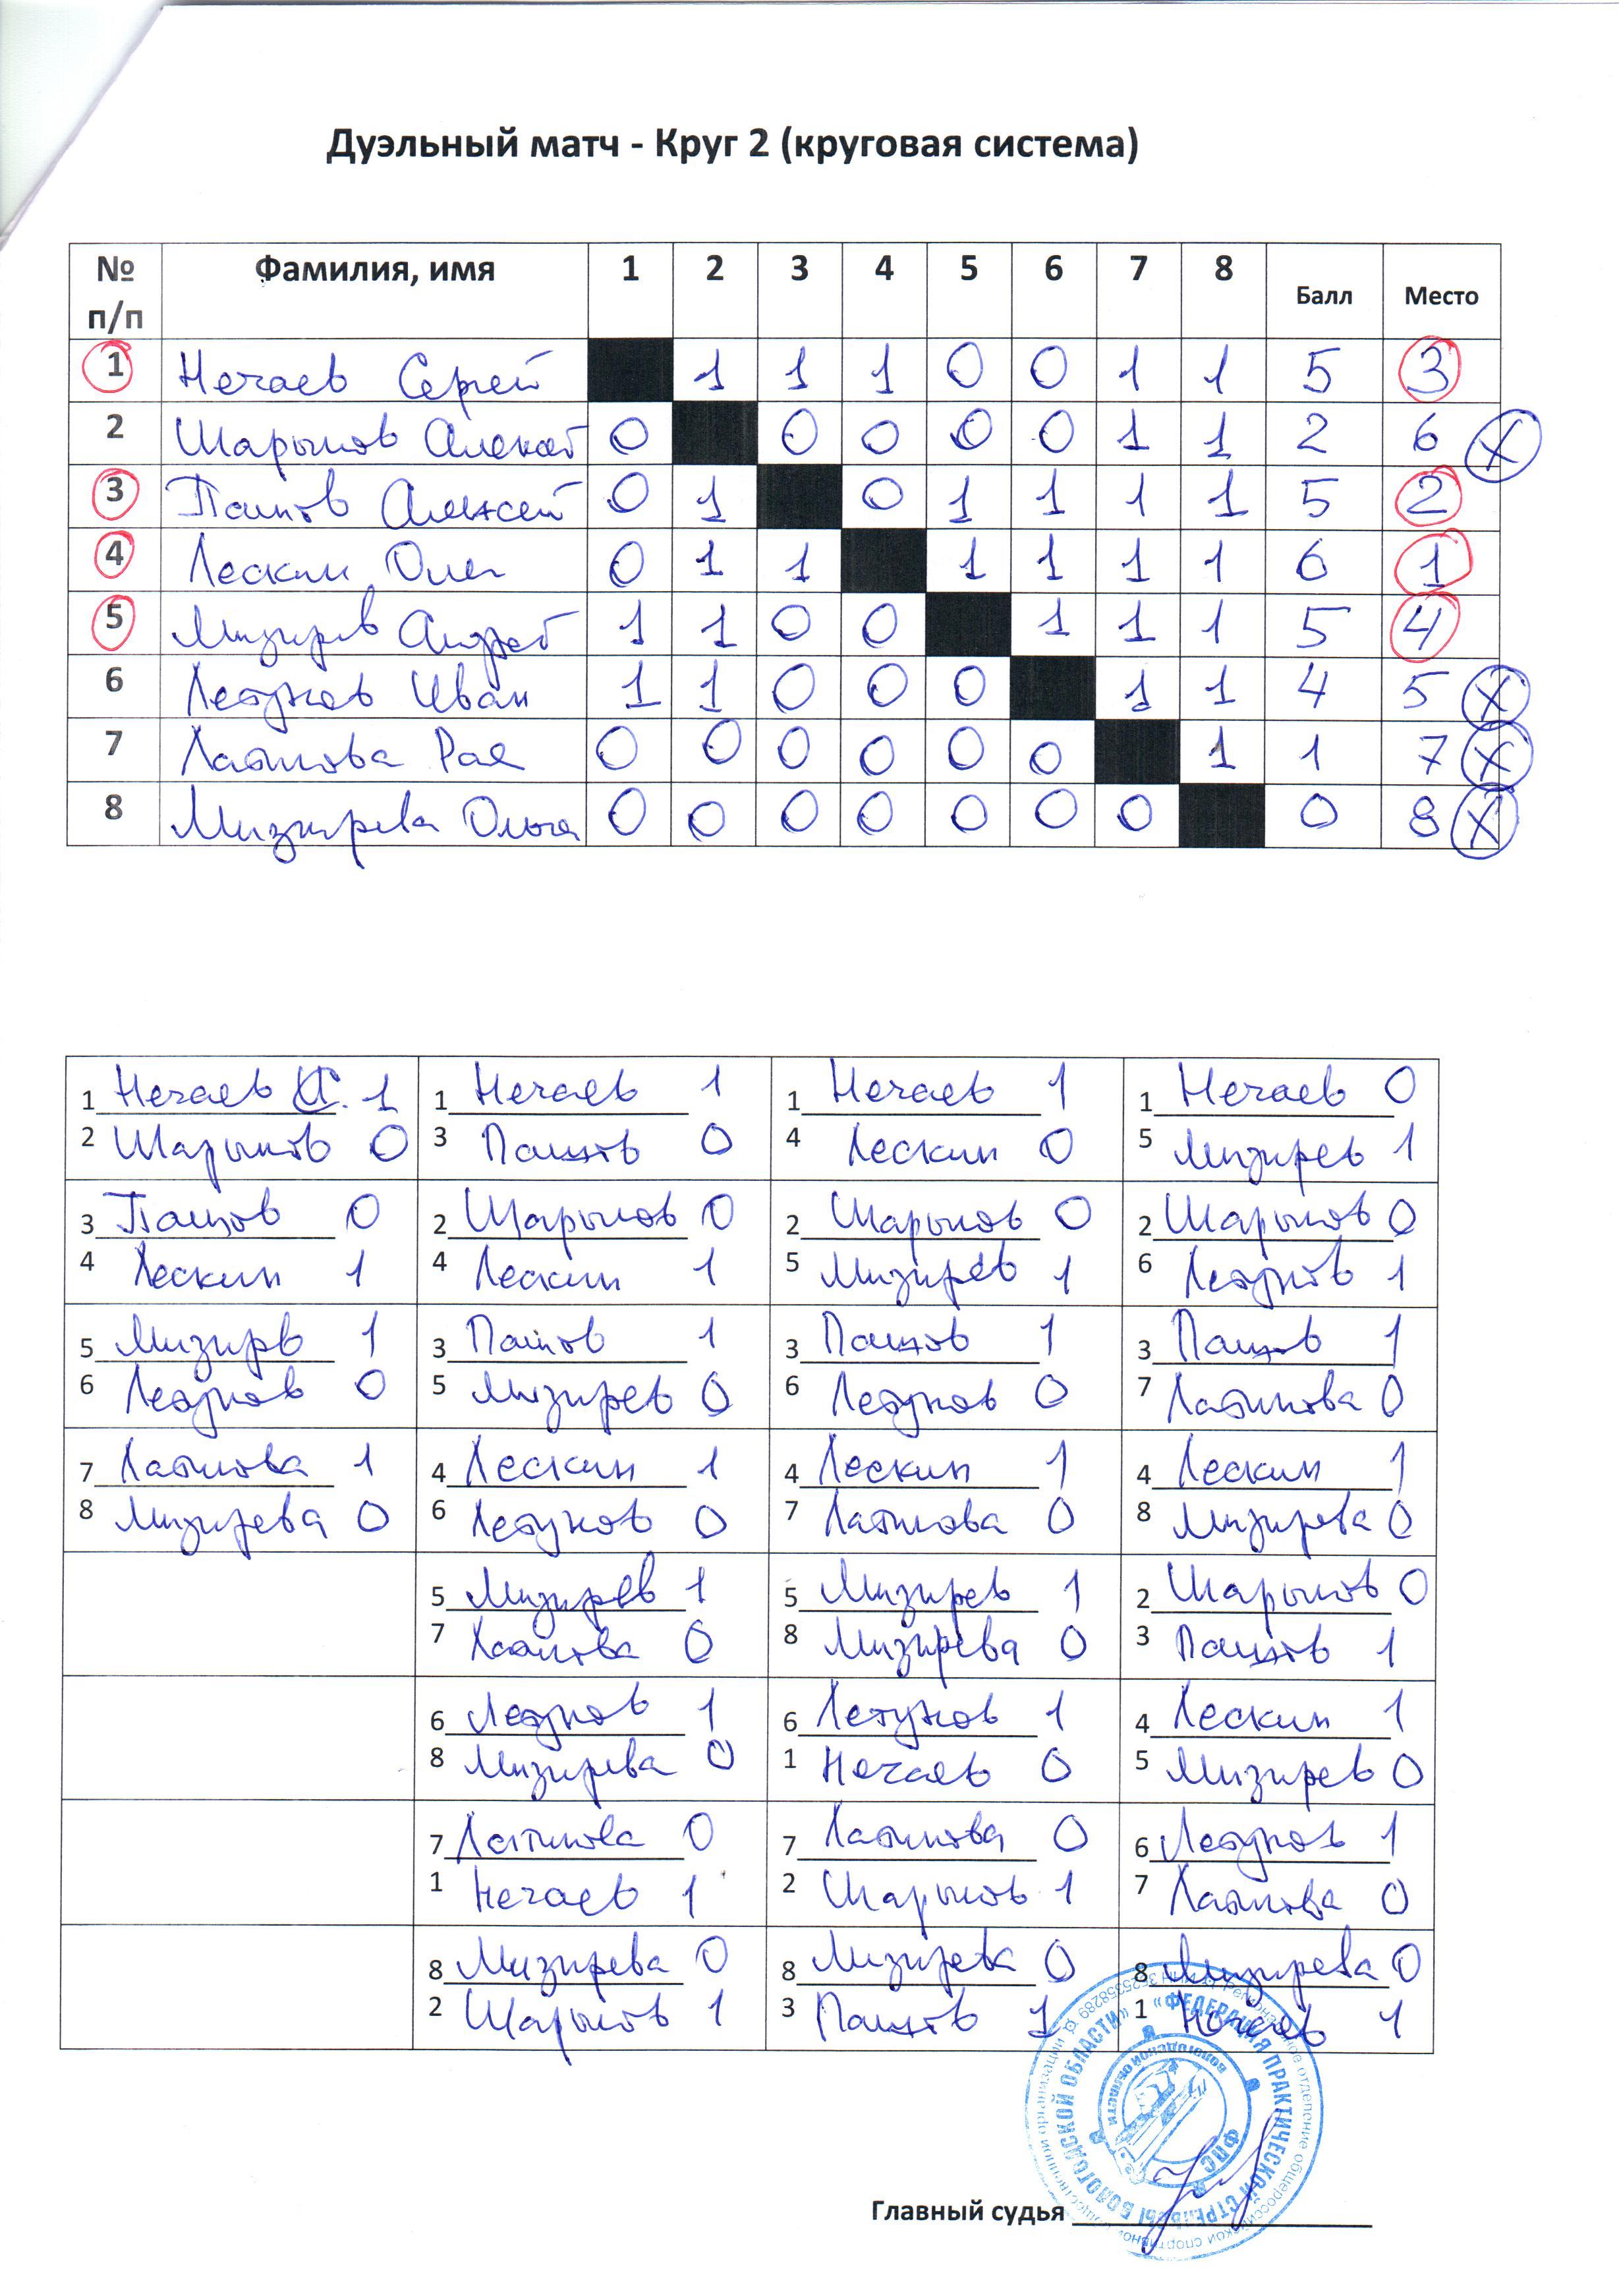 Дуэльный матч - Круг 2 (круговая система)
№ п/п Фамилия, имя 1 2 3 4 5 6 7 8 Балл Место
1 Нечаев Сергей 1 1 1 0 0 1 1 5 3
2 Шарыпов Алексей 0 0 0 0 0 1 1 2 6 X
3 Пашов Алексей 0 1 0 1 1 1 1 5 2
4 Лескин Олег 0 1 1 1 1 1 1 6 1
5 Мизирев Андрей 1 1 0 0 1 1 1 5 4
6 Летунов Иван 1 1 0 0 0 1 1 4 5 X
7 Латипова Рая 0 0 0 0 0 0 1 1 7 X
8 Мизирева Ольга 0 0 0 0 0 0 0 0 8 X
1 Нечаев С. 1 1 Нечаев 1 1 Нечаев 1 1 Нечаев 0
2 Шарыпов 0 3 Пашов 0 4 Лескин 0 5 Мизирев 1
3 Пашов 0 2 Шарыпов 0 2 Шарыпов 0 2 Шарыпов 0
4 Лескин 1 4 Лескин 1 5 Мизирев 1 6 Летунов 1
5 Мизирев 1 3 Пашов 1 3 Пашов 1 3 Пашов 1
6 Летунов 0 5 Мизирев 0 6 Летунов 0 7 Латипова 0
7 Латипова 1 4 Лескин 1 4 Лескин 1 4 Лескин 1
8 Мизирева 0 6 Летунов 0 7 Латипова 0 8 Мизирева 0
5 Мизирев 1 5 Мизирев 1 2 Шарыпов 0
7 Латипова 0 8 Мизирева 0 3 Пашов 1
6 Летунов 1 6 Летунов 1 4 Лескин 1
8 Мизирева 0 1 Нечаев 0 5 Мизирев 0
7 Латипова 0 7 Латипова 0 6 Летунов 1
1 Нечаев 1 2 Шарыпов 1 7 Латипова 0
8 Мизирева 0 8 Мизирева 0 8 Мизирева 0
2 Шарыпов 1 3 Пашов 1 1 Нечаев 1
«ФЕДЕРАЦИЯ ПРАКТИЧЕСКОЙ СТРЕЛЬБЫ ВОЛОГОДСКОЙ ОБЛАСТИ»
ВОЛОГОДСКОЙ ОБЛАСТИ
ФПС
Главный судья